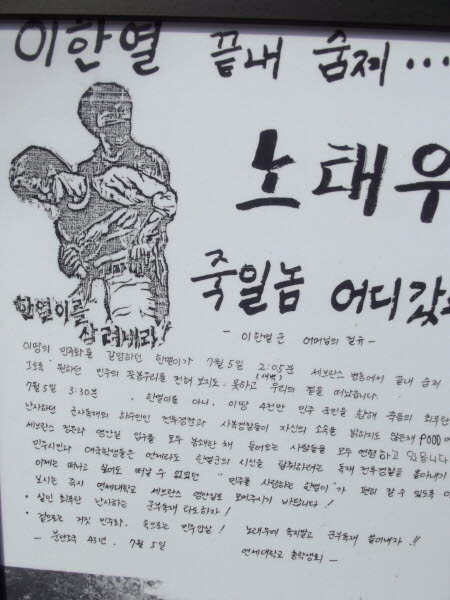 이한열 끝내 숨져...
노태우
죽일놈 어디갔
한열이를
살려내라!
- 이한열군 어머님의 절규 -
이땅의 민주화를 갈망하던 한열이가 7월 5일 2:05분 세브란스 병동에서 끝내 숨져
그토록 원하던 민주의 꽃봉우리를 전혀 보지도 못하고 (새벽) 우리의 곁을 떠났습니다.
7월 5일 3:30분 한열이를 아니, 이땅 4천만 민주 국민을 향해 죽음의 최루탄
난사하던 군사독재의 하수인인 전투경찰와 사복경찰들이 자신의 소속을 밝히지도 않은채 1500여
세브란스 정문과 영안실 입구를 모두 봉쇄한 채 들어오는 사람들을 모두 연행하고 있습니다
민주시민과 애국학생들은 언제라도 한열군의 시신을 탈취하려는 독재 전투경찰을 몰아내기
이제는 떠나고 싶어도 떠날 수 없었던 "민주를 사랑하는 한열이"가 편히 잘 수 있도록 이
보시는 즉시 연세대학교 세브란스 영안실로 모여주시기 바랍니다!
• 살인 최루탄 난사하는 군부독재 타도하자!
• 겉으로는 거짓 민주화, 속으로는 민주압살! 노태우에 속지말고 군부독재 끝어내자!!
- 분단조국 43년. 7월 5일 연세대학교 총학생회 -